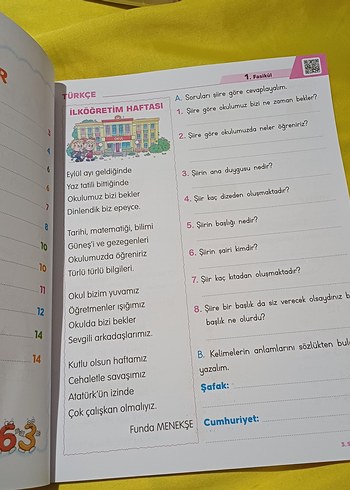 1. Fasikül
TÜRKÇE
İLKÖĞRETİM HAFTASI
Eylül ayı geldiğinde
Yaz tatili bittiğinde
Okulumuz bizi bekler
Dinlendik biz epeyce.
Tarihi, matematiği, bilimi
Güneş'i ve gezegenleri
Okulumuzda öğreniriz
Türlü türlü bilgileri.
Okul bizim yuvamız
Öğretmenler ışığımız
Okulda bizi bekler
Sevgili arkadaşlarımız.
Kutlu olsun haftamız
Cehaletle savaşımız
Atatürk'ün izinde
Çok çalışkan olmalıyız.
Funda MENEKŞE
A. Soruları şiire göre cevaplayalım.
1. Şiire göre okulumuz bizi ne zaman bekler?
2. Şiire göre okulumuzda neler öğreniriz?
3. Şiirin ana duygusu nedir?
4. Şiir kaç dizeden oluşmaktadır?
5. Şiirin başlığı nedir?
6. Şiirin şairi kimdir?
7. Şiir kaç kıtadan oluşmaktadır?
8. Şiire bir başlık da siz verecek olsaydınız b
başlık ne olurdu?
B. Kelimelerin anlamlarını sözlükten bul
yazalım.
Şafak:
Cumhuriyet:
R
2
4
6
6
7
8
10
10
11
12
14
14
63